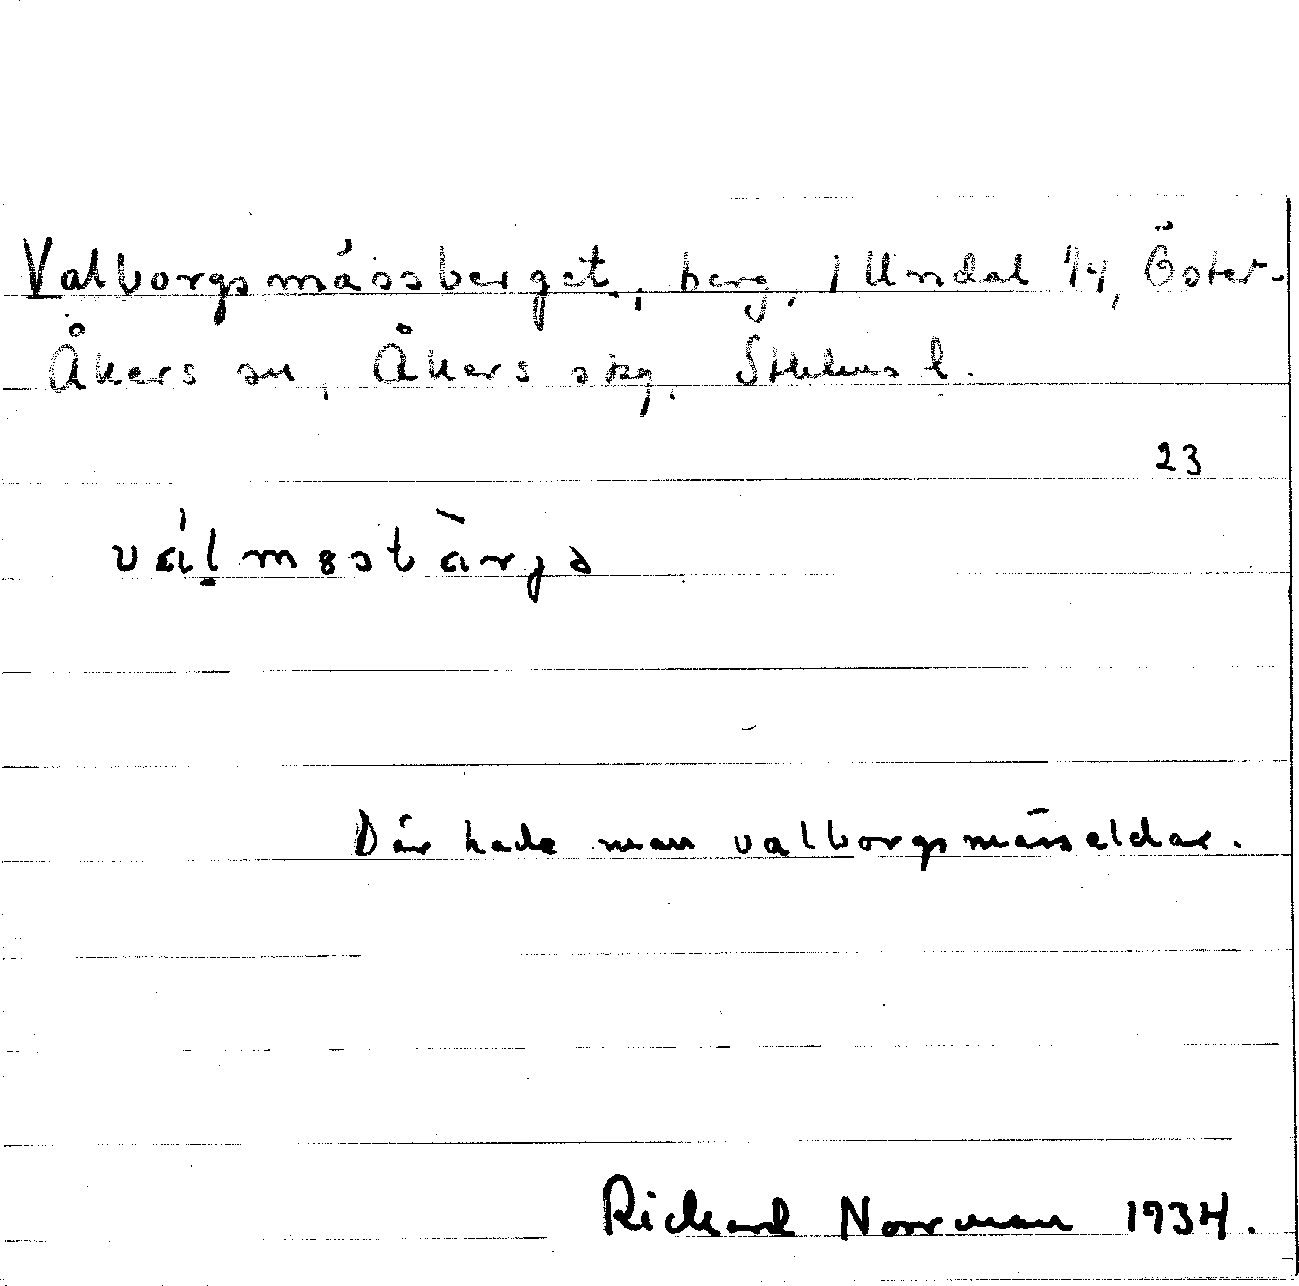 Valborgsmässberget, berg, i Undal 1/4, Öster-
Åkers sn, Åkers skg. Sthlms l.
23
Där hade man valborgsmässeldar.
Richard Norrman 1934.